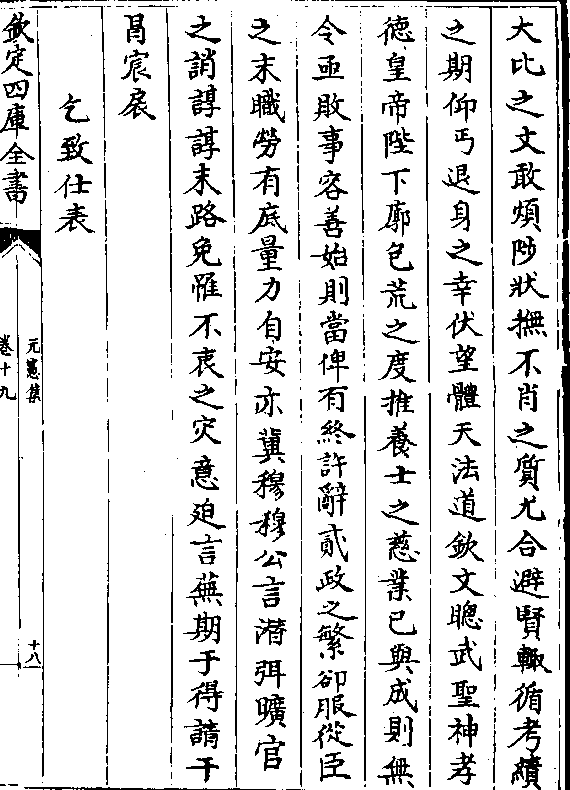 大比之文敢煩陟狀撫不肖之質尤合避賢輙循考績
之期仰丐退身之幸伏望體天法道欽文聰武聖神孝
德皇帝陛下廓包荒之度推養士之慈業已與成則無
令亟敗事容善始則當俾有終許辭貳政之繁卻服從臣
之末職勞有底量力自安亦冀穆穆公言潛弭曠官
之誚諄諄末路免罹不衷之灾意迫言蕪期于得請干
冐宸扆
乞致仕表
欽定四庫全書
元憲集
卷十九
十八